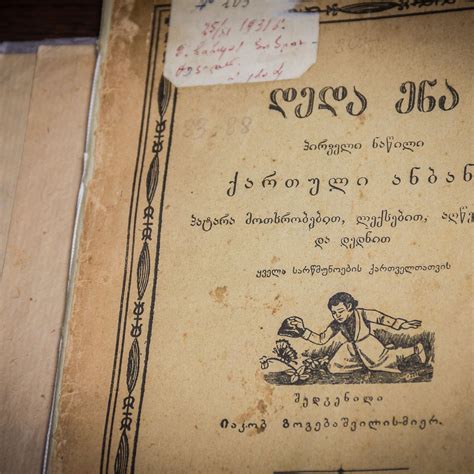 25/XI 1931 წ.
83.88
დედა ენა
პირველი ნაწილი
ქართული ანბან
პატარა მოთხრობებით, ლექსებით, აღწ
და დედნით
ყველა სარწმუნოების ქართველთათვის
შედგენილი
იაკობ გოგებაშვილის-მიერ.